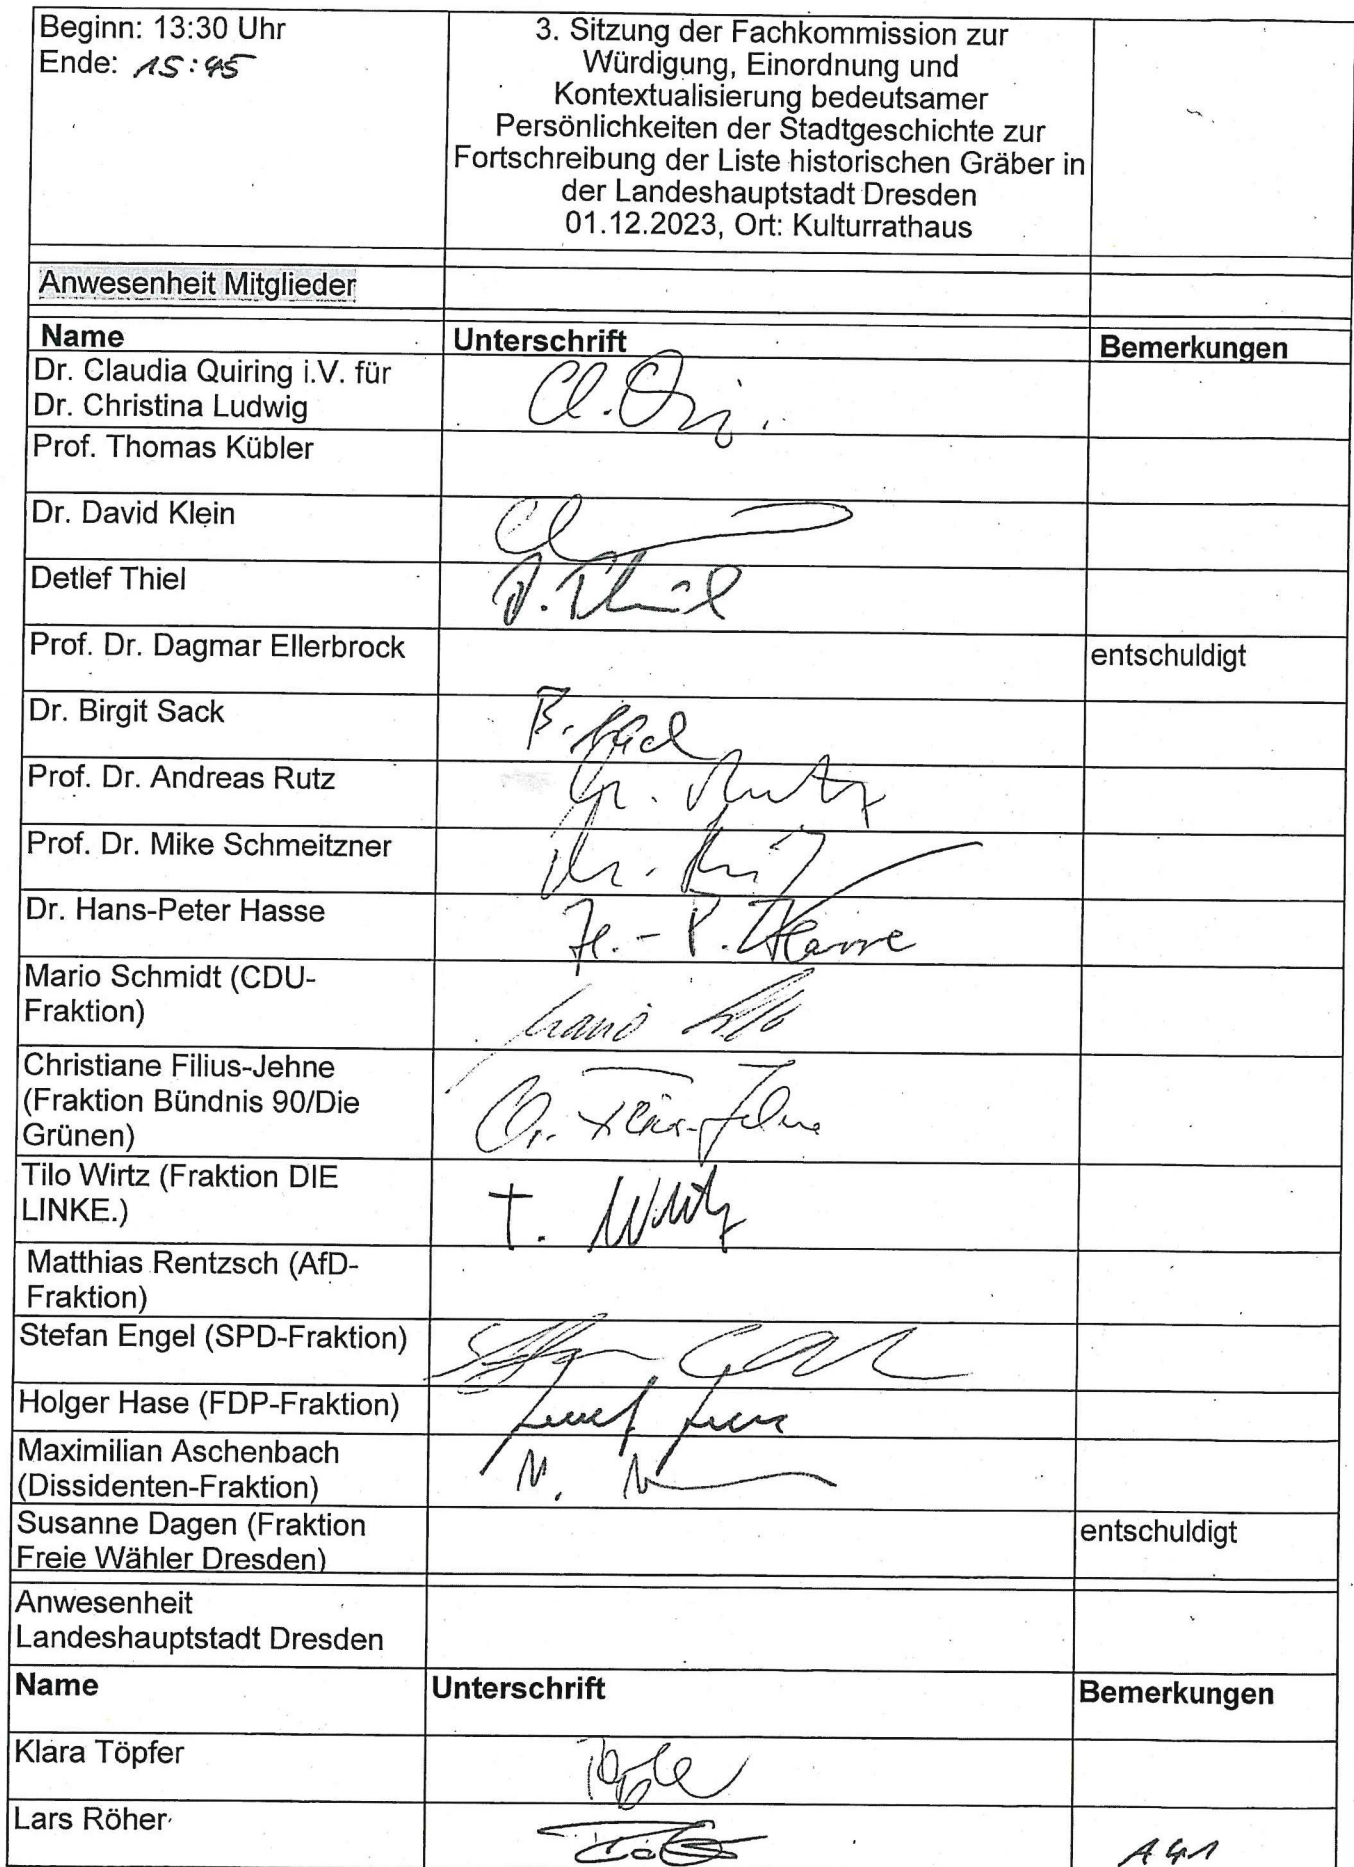 Beginn: 13:30 Uhr
Ende: 15:45
3. Sitzung der Fachkommission zur
Würdigung, Einordnung und
Kontextualisierung bedeutsamer
Persönlichkeiten der Stadtgeschichte zur
Fortschreibung der Liste historischen Gräber in
der Landeshauptstadt Dresden
01.12.2023, Ort: Kulturrathaus
Anwesenheit Mitglieder
Name Unterschrift Bemerkungen
Dr. Claudia Quiring i.V. für
Dr. Christina Ludwig
Prof. Thomas Kübler
Dr. David Klein
Detlef Thiel D. Thiel
Prof. Dr. Dagmar Ellerbrock entschuldigt
Dr. Birgit Sack B. Sack
Prof. Dr. Andreas Rutz A. Rutz
Prof. Dr. Mike Schmeitzner
Dr. Hans-Peter Hasse H.-P. Hasse
Mario Schmidt (CDU-
Fraktion) Mario
Christiane Filius-Jehne
(Fraktion Bündnis 90/Die
Grünen) Ch. Filius-Jehne
Tilo Wirtz (Fraktion DIE
LINKE.) T. Wirtz
Matthias Rentzsch (AfD-
Fraktion)
Stefan Engel (SPD-Fraktion)
Holger Hase (FDP-Fraktion)
Maximilian Aschenbach
(Dissidenten-Fraktion)
Susanne Dagen (Fraktion entschuldigt
Freie Wähler Dresden)
Anwesenheit
Landeshauptstadt Dresden
Name Unterschrift Bemerkungen
Klara Töpfer
Lars Röher